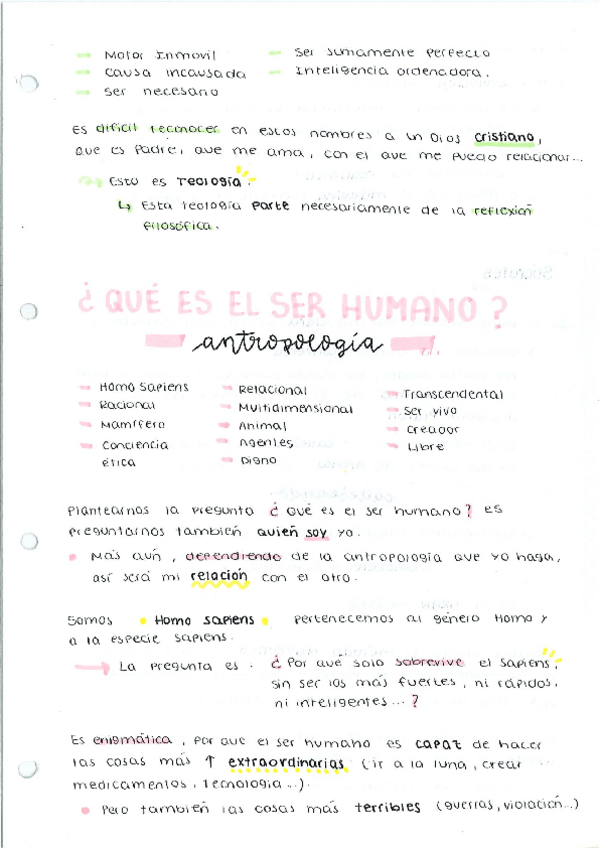 Motor Inmovil
Causa incausada
Ser necesario
Ser sumamente perfecto
Inteligencia ordenadora.
Es difícil reconocer en estos nombres a un Dios cristiano,
que es Padre, que me ama, con el que me puedo relacionar...
Esto es Teología.
↳ Esta teología parte necesariamente de la reflexión
filosófica.
¿QUÉ ES EL SER HUMANO?
antropología
Homo Sapiens
Racional
Mamífero
Conciencia
ética
Relacional
Multidimensional
Animal
Agentes
Digno
Transcendental
Ser vivo
Creador
Libre
Plantearnos la pregunta ¿Qué es el ser humano? es
preguntarnos también quién soy yo.
Más aún, dependiendo de la antropología que yo haga,
así será mi relación con el otro.
Somos Homo sapiens pertenecemos al género Homo y
a la especie sapiens.
→ La pregunta es. ¿Por qué solo sobrevive el sapiens,
sin ser los más fuertes, ni rápidos,
ni inteligentes...?
Es enigmática, porque el ser humano es capaz de hacer
las cosas más ↑ extraordinarias (ir a la luna, crear
medicamentos, tecnología...).
Pero también las cosas más terribles (guerras, violación...)